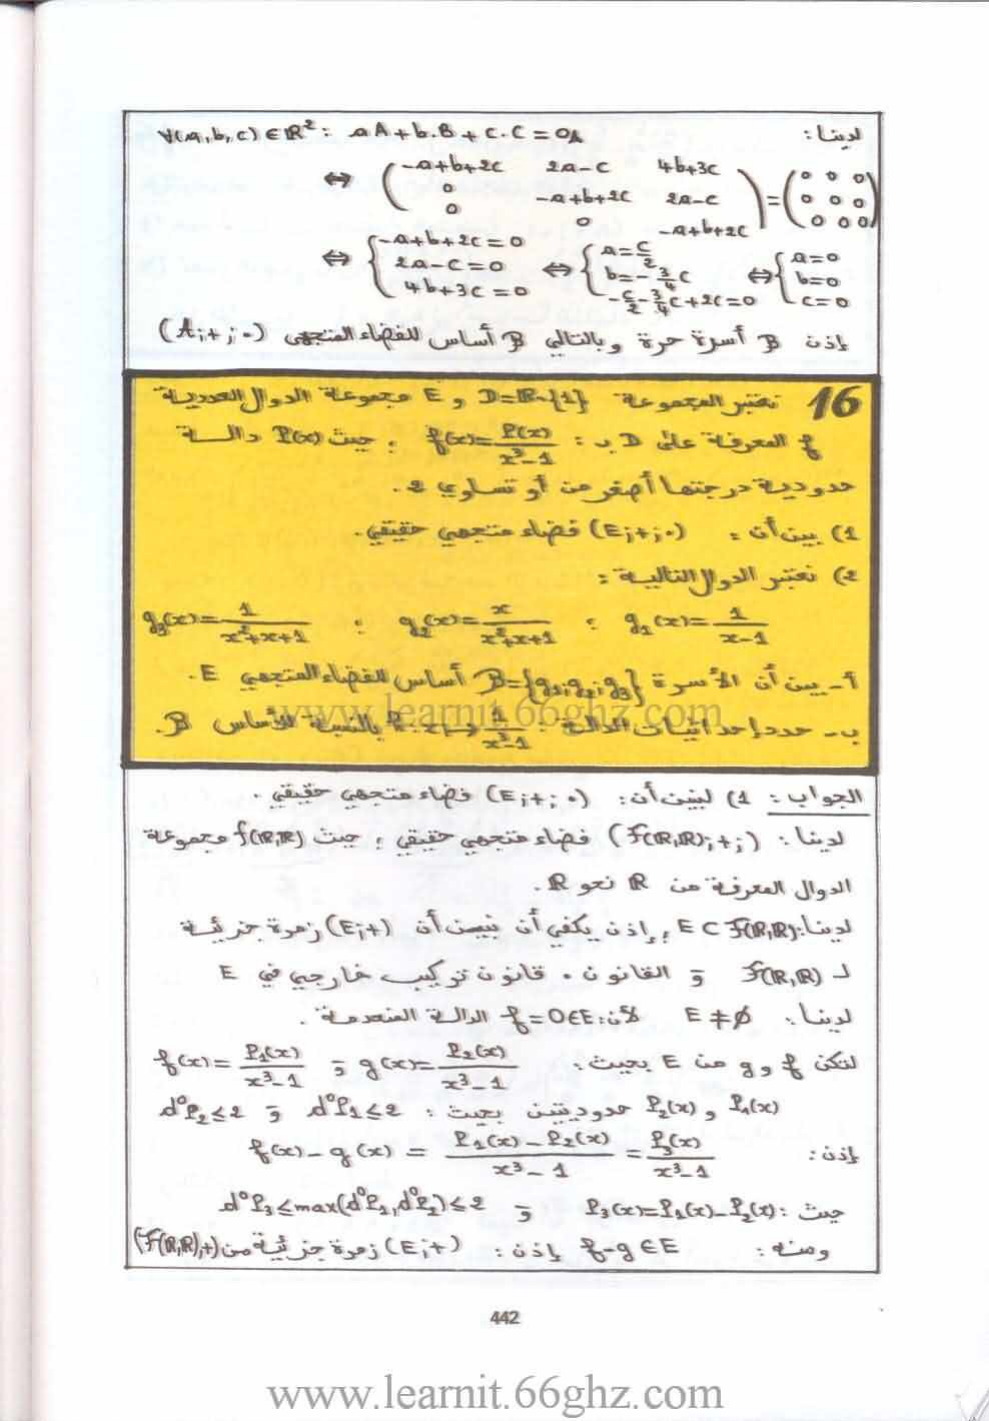 لدينا: ∀(a,b,c)∈ℝ²: aA+b.B+c.C=0A
⇔ ( -a+b+2c 2a-c 4b+3c ) = ( 0 0 0 )
0 -a+b+2c 2a-c 0 0 0
0 0 -a+b+2c 0 0 0
⇔ { -a+b+2c=0 ⇔ { a=c/2 ⇔ { a=0
2a-c=0 b=-3/4c b=0
4b+3c=0 -c/2-3/4c+2c=0 c=0
إذن B أسرة حرة وبالتالي B أساس للفضاء المتجهي (A;+;·)
16 نعتبر المجموعة D=ℝ-{1} و E مجموعة الدوال العددية
f المعرفة على D ب: f(x)=P(x)/(x³-1) ; حيث P(x) دالة
حدودية درجتها أصغر من أو تساوي 2.
1) بين أن: (E;+;·) فضاء متجهي حقيقي.
2) نعتبر الدوال التالية:
g₁(x)=1/(x-1) ; g₂(x)=x/(x²+x+1) ; g₃(x)=1/(x²+x+1)
أ- بين أن الأسرة B={g₁;g₂;g₃} أساس للفضاء المتجهي E.
www.learnit.66ghz.com
ب- حدد إحداثيات الدالة: h: x↦1/(x³-1) بالنسبة للأساس B.
الجواب: 1) لنبين أن: (E;+;·) فضاء متجهي حقيقي.
لدينا: (F(ℝ,ℝ);+;) فضاء متجهي حقيقي ; حيث f(ℝ,ℝ) مجموعة
الدوال المعرفة من ℝ نحو ℝ.
لدينا: E⊂F(ℝ,ℝ) ; إذن يكفي أن نبين أن (E;+) زمرة جزئية
لـ F(ℝ,ℝ) و القانون · قانون تركيب خارجي في E
لدينا: E≠∅ لأن: f=0∈E الدالة المنعدمة.
لتكن f و g من E بحيث: g(x)=P₂(x)/(x³-1) و f(x)=P₁(x)/(x³-1)
P₁(x) و P₂(x) حدوديتين بحيث: d°P₁≤2 و d°P₂≤2
إذن: f(x)-g(x)=(P₁(x)-P₂(x))/(x³-1)=P₃(x)/(x³-1)
حيث: P₃(x)=P₁(x)-P₂(x) و d°P₃≤max(d°P₁,d°P₂)≤2
ومنه: f-g∈E إذن: (E;+) زمرة جزئية من (F(ℝ,ℝ),+)
442
www.learnit.66ghz.com